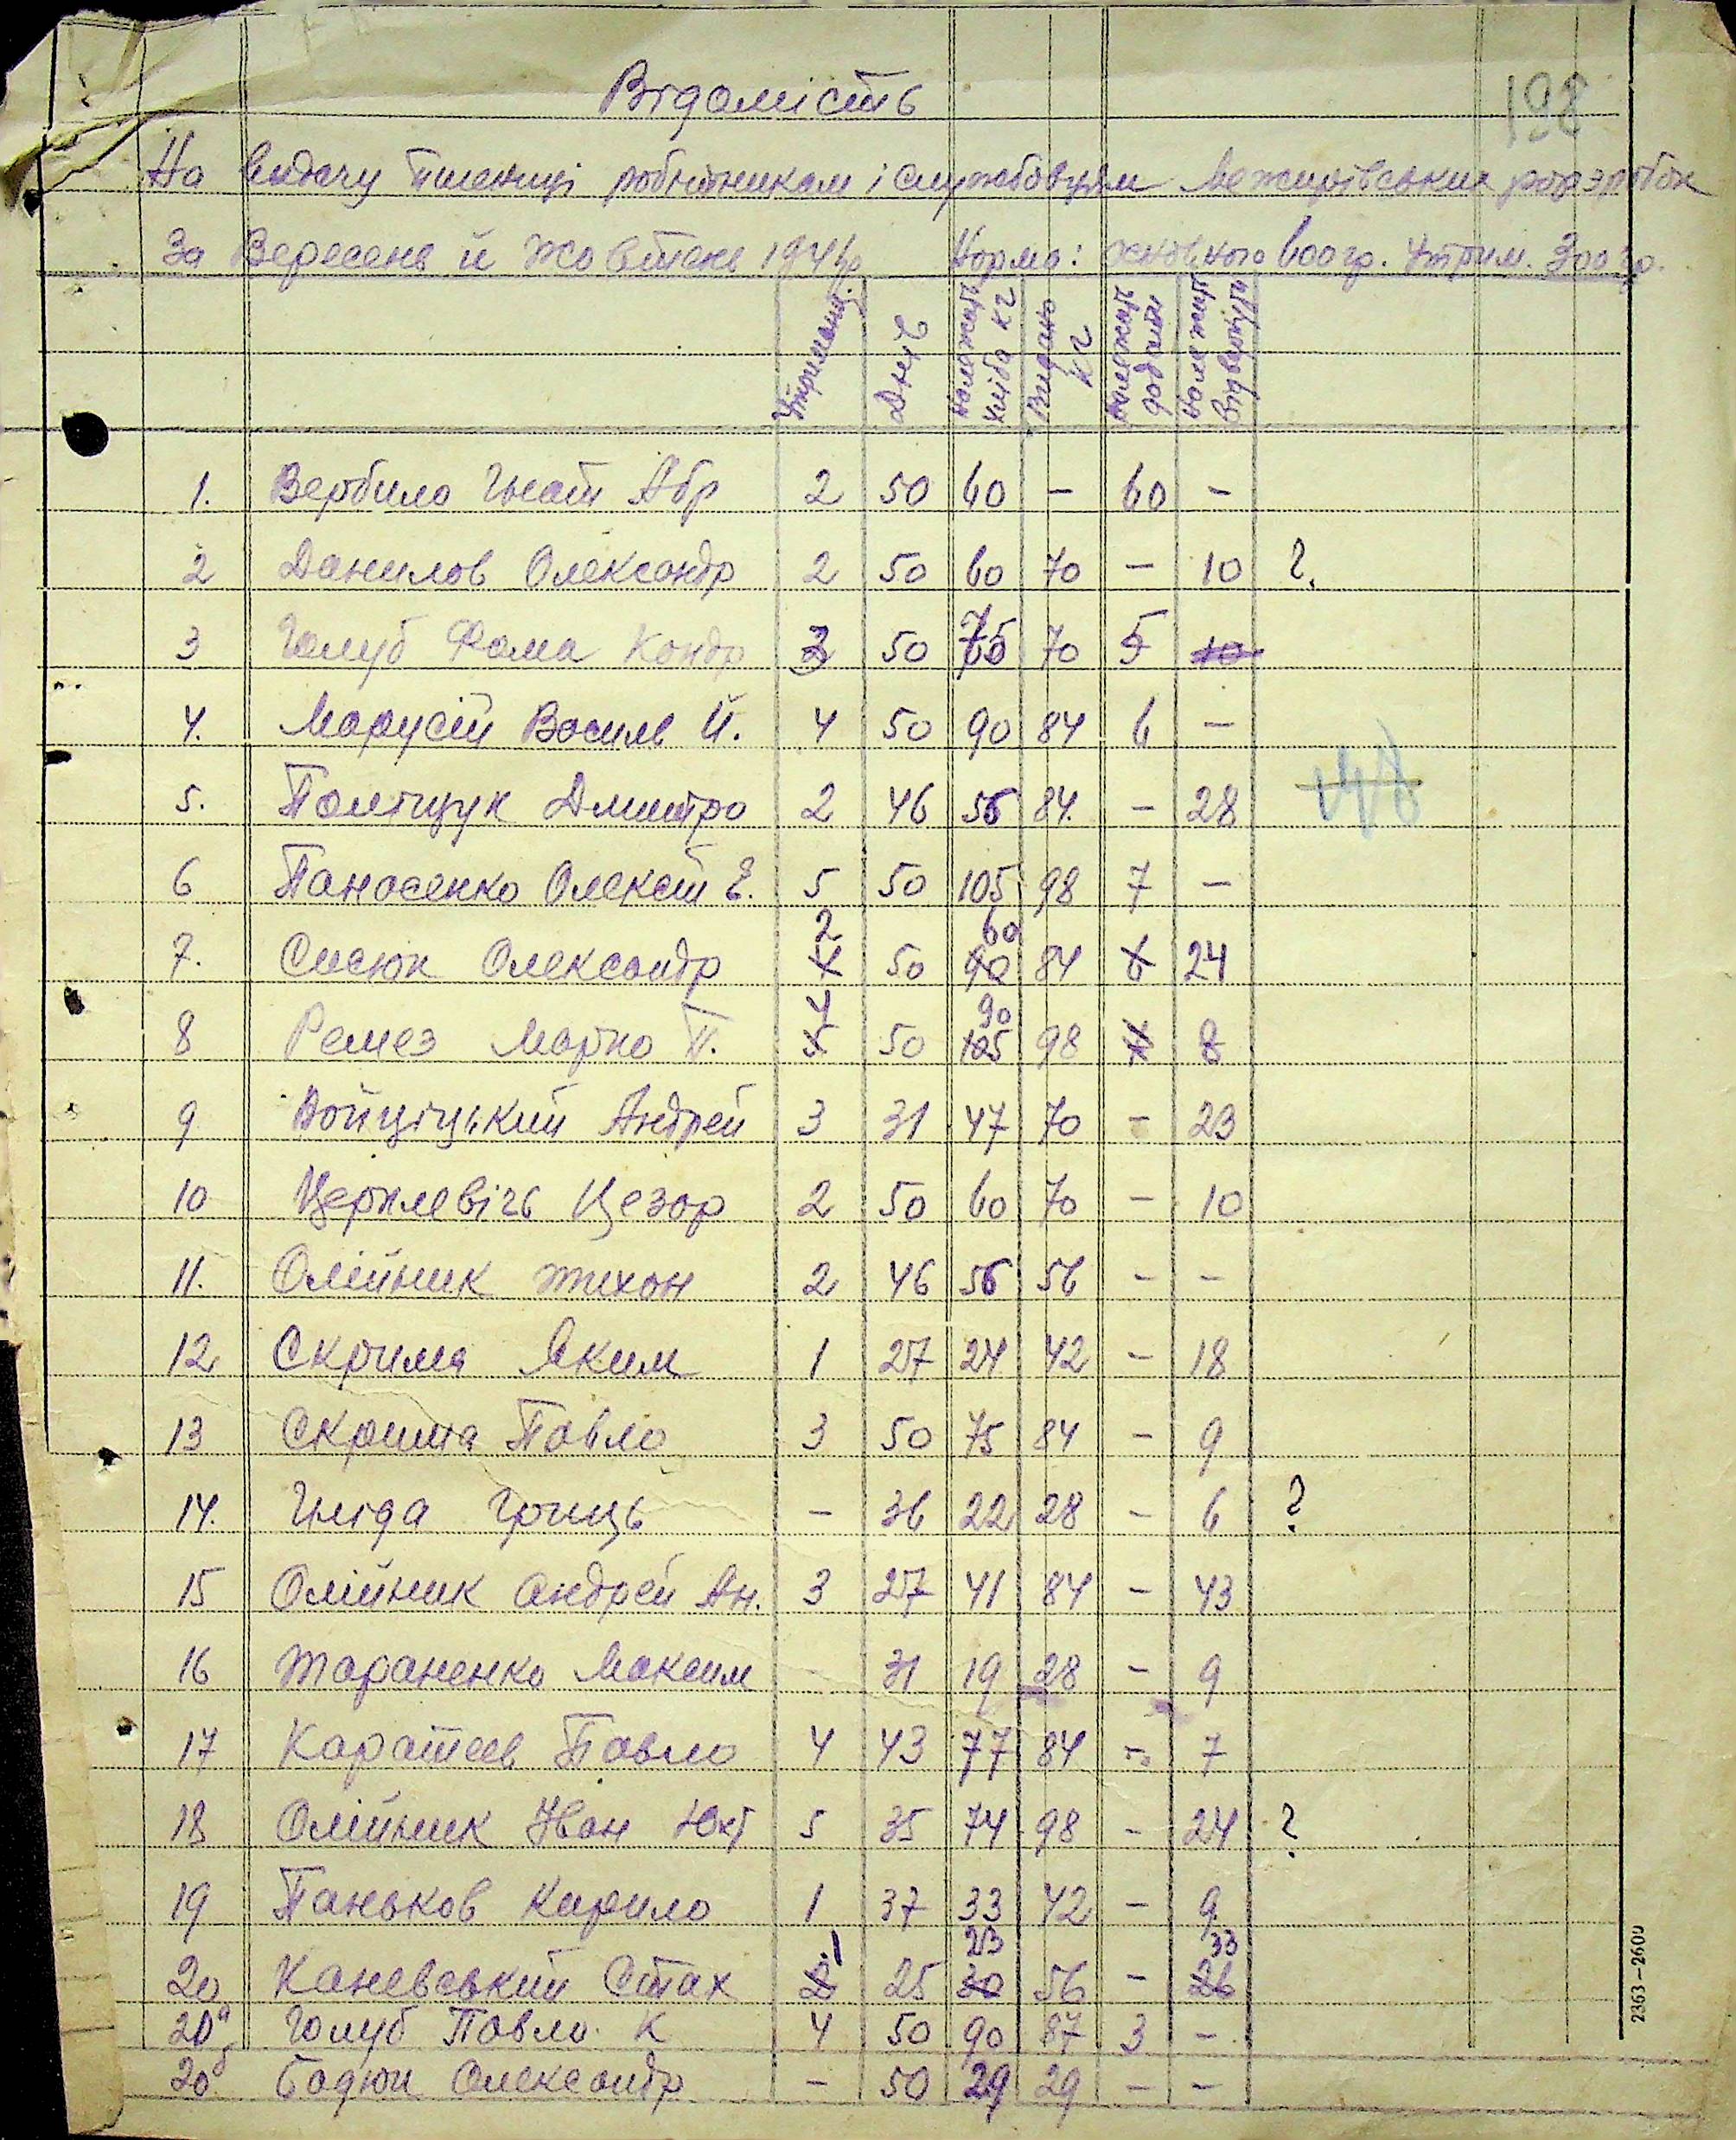 198
Відомість
На видачу пшениці робітникам і службовцям Межирівських розробок
За Вересень й Жовтень 194 Норма: 600 гр. Утрим. 300 гр.
Утриманц. Днів Належить хліба кг Видано кг Належить додати Належить відвернути
1. Вербило Гнат Абр 2 50 60 – 60 –
2 Данилов Олександр 2 50 60 70 – 10 ?
3 Голуб Фома Кондр 3 50 75 70 5 10
4. Марусій Василь Й. 4 50 90 84 6 –
148
5. Поліщук Дмитро 2 46 56 84 – 28
6 Панасенко Олексій Е. 5 50 105 98 7 –
2 60
7. Сисюк Олександр 4 50 90 84 6 24
4 90
8 Ремез Марко П. 5 50 105 98 7 8
9 Войціцький Андрей 3 31 47 70 – 23
10 Церклевічь Цезар 2 50 60 70 – 10
11. Олійник Тихон 2 46 56 56 – –
12 Скрима Яким 1 27 24 42 – 18
13 Скрима Павло 3 50 75 84 – 9
14. Гнида Гриць – 36 22 28 – 6 ?
15 Олійник Андрей Ан. 3 27 41 84 – 43
16 Тараненко Максим 31 19 28 – 9
17 Каратеев Павло 4 43 77 84 – 7
18 Олійник Іван 5 35 74 98 – 24 ?
19 Паньков Кирило 1 37 33 42 – 9
1 23 33
20 Каневський Стах 2 25 30 56 – 26
20а Голуб Павло К 4 50 90 87 3 –
20б Бадюк Олександр – 50 29 29 – –
2363–2600